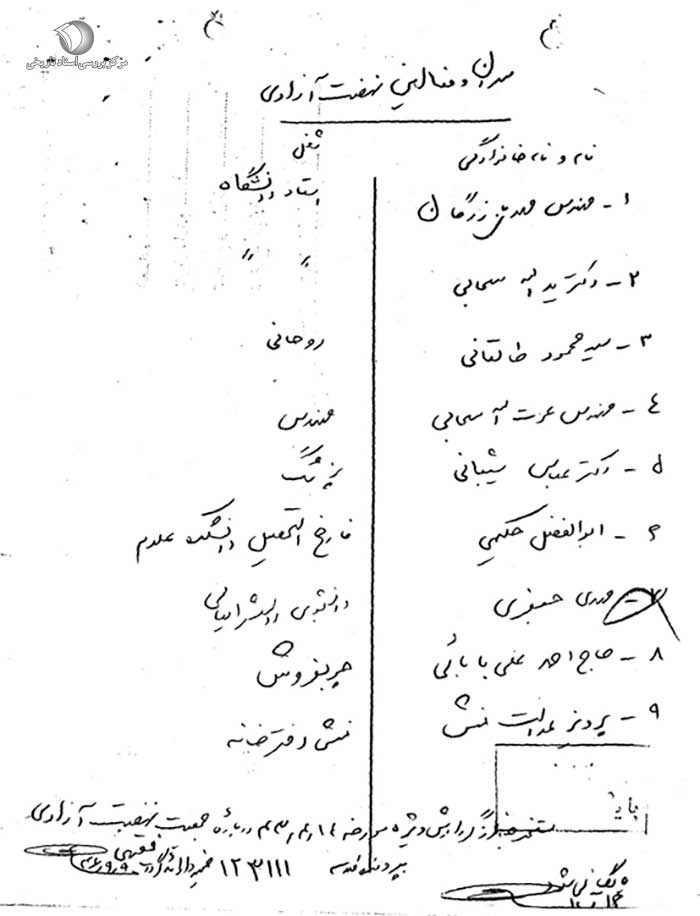 مرکز بررسی اسناد تاریخی
سران و فعالین نهضت آزادی
نام و نام خانوادگی شغل
۱- مهندس مهدی بازرگان استاد دانشگاه
۲- دکتر یداله سحابی " "
۳- سید محمود طالقانی روحانی
۴- مهندس عزت اله سحابی مهندس
۵- دکتر عباس شیبانی پزشک
۶- ابوالفضل حکیمی فارغ التحصیل دانشکده علوم
۷- مهدی جعفری دانشجوی
۸- حاج احمد علی بابائی چرمفروش
۹- پرویز عدالت منش منشی دفترخانه
مستخرجه از گزارش ویژه مورخه ۱۴ر۴ر۴۳ درباره جمعیت نهضت آزادی
بپرونده ۱۲۳۱۱۱